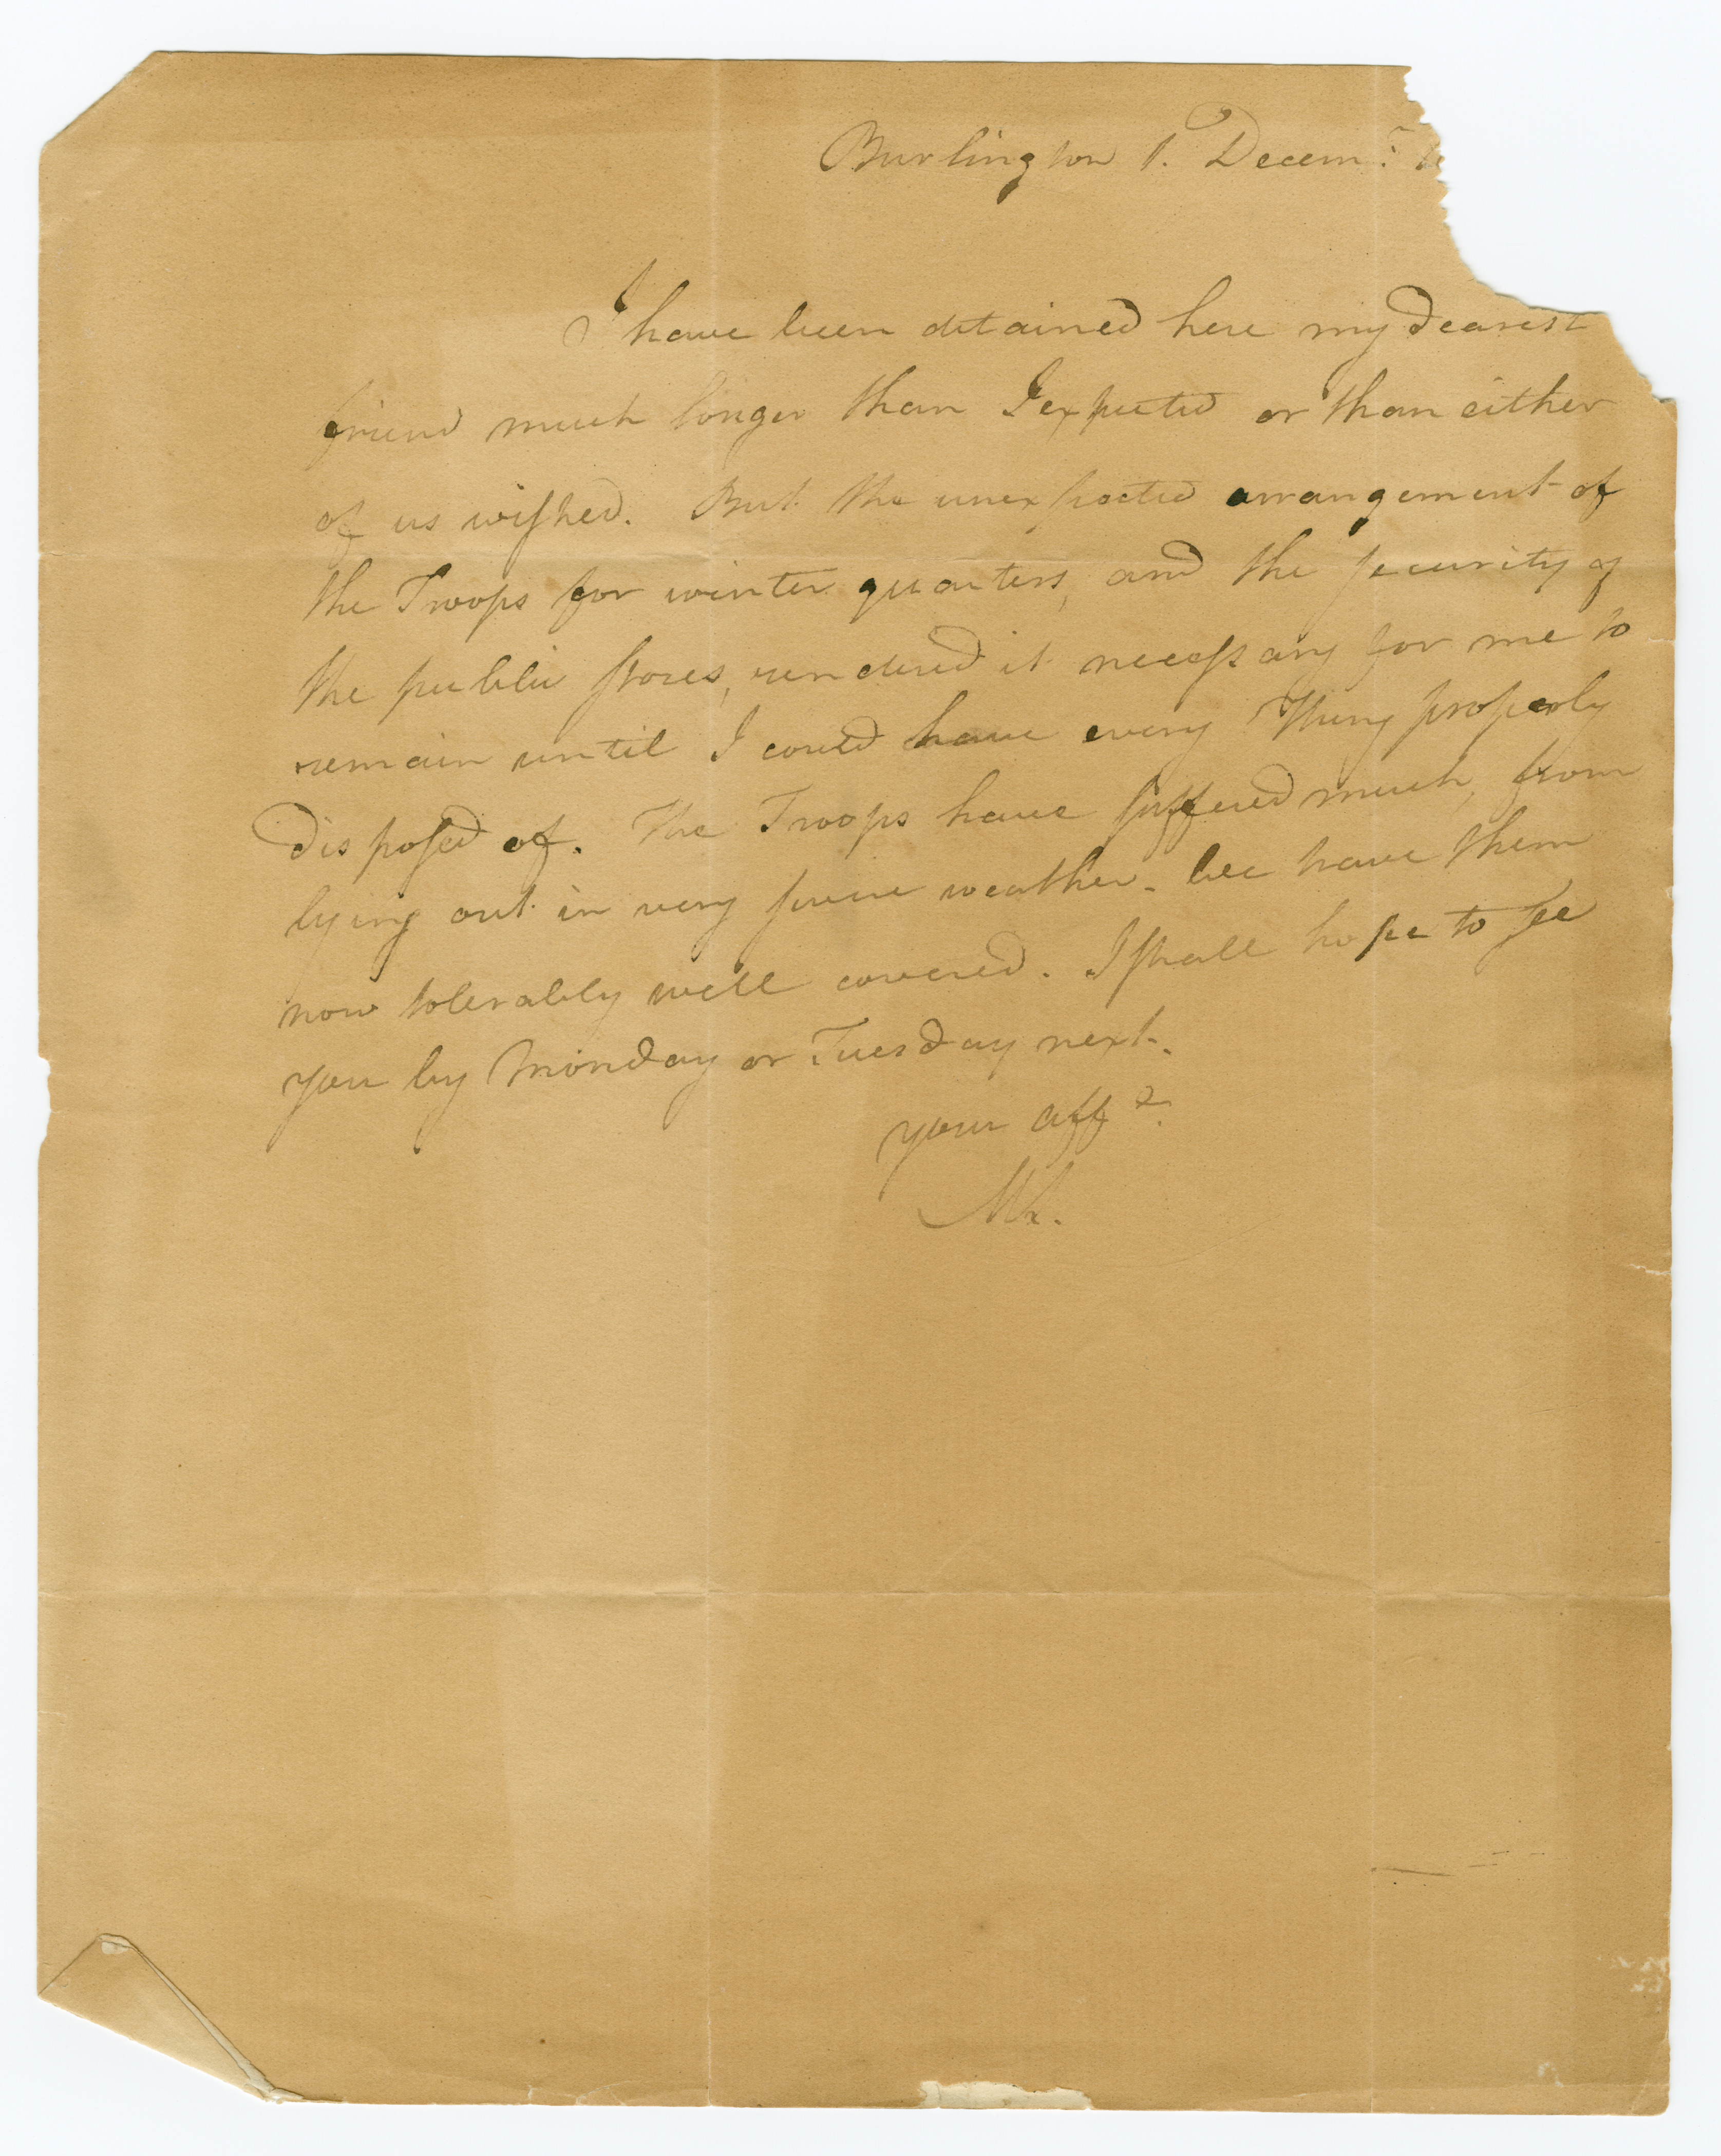 Burlington 1. Decem.r
I have been detained here my dearest
friend much longer than I expected or than either
of us wiſhed. But the unexpected arrangement of
the Troops for winter quarters, and the ſecurity of
the public ſtores, rendered it neceſsary for me to
remain until I could have every Thing properly
disposed of. The Troops have ſuffered much, from
lying out in very ſevere weather. We have them
now tolerably well covered. I ſhall hope to ſee
you by Monday or Tuesday next.
your aff.e